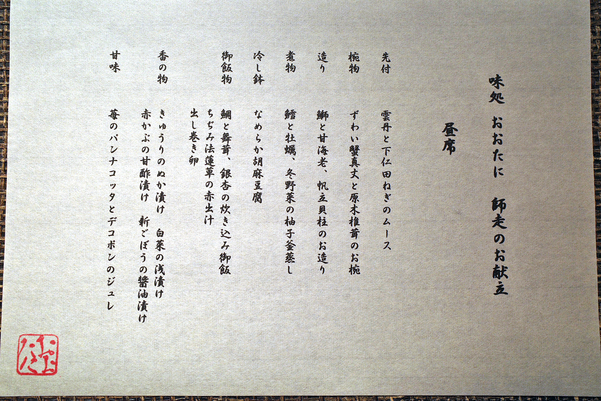 味処 おおたに 師走のお献立
昼席
先付 雲丹と下仁田ねぎのムース
椀物 ずわい蟹真丈と原木椎茸のお椀
造り 鰤と甘海老、帆立貝柱のお造り
煮物 鱈と牡蠣、冬野菜の柚子釜蒸し
冷し鉢 なめらか胡麻豆腐
御飯物 鯛と舞茸、銀杏の炊き込み御飯
ちぢみ法蓮草の赤出汁
出し巻き卵
香の物 きゅうりのぬか漬け 白菜の浅漬け
赤かぶの甘酢漬け 新ごぼうの醤油漬け
甘味 苺のパンナコッタとデコポンのジュレ